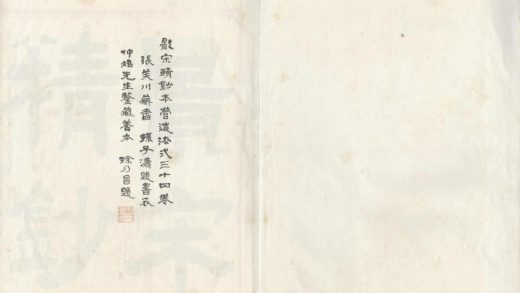 影宋精鈔本營造法式三十四卷
張芙川藏書 孫子瀟題書衣
仲炤先生鑒藏善本 徐乃昌題